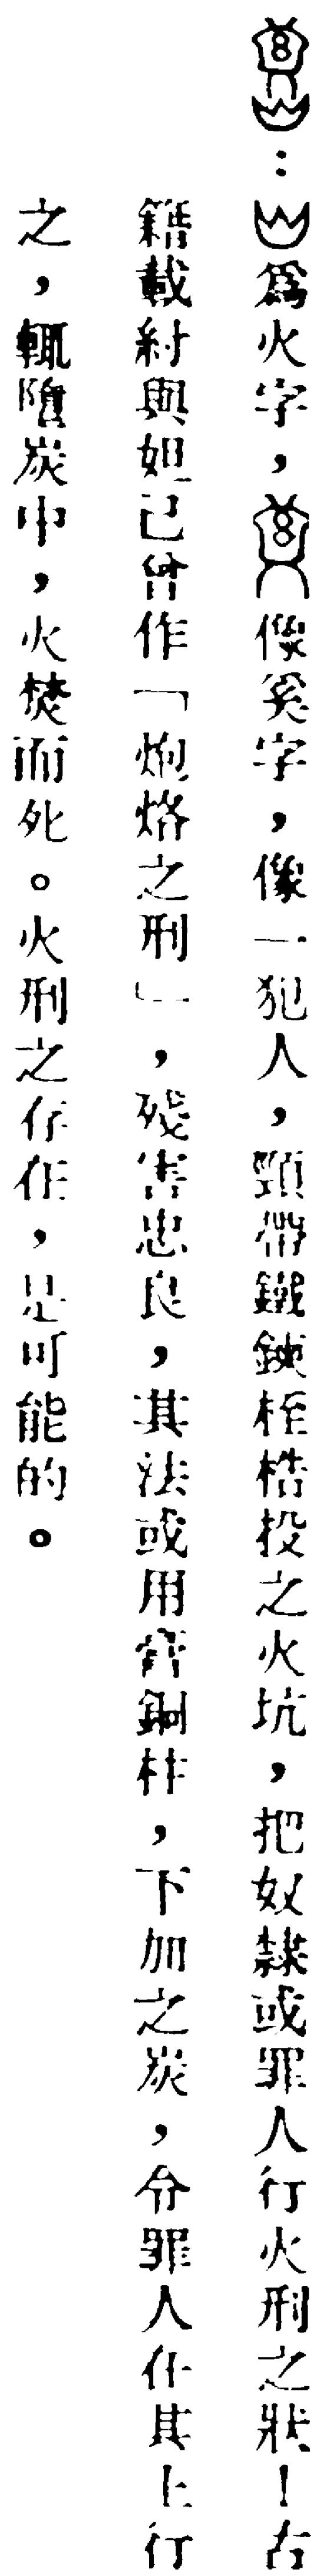 ：為火字，像奚字，像一犯人，頸帶鐵鋏桎梏投之火坑，把奴隸或罪人行火刑之狀！古
籍載紂與妲己曾作「炮烙之刑」，殘害忠良，其法或用膏銅柱，下加之炭，令罪人在其上行
之，輒墮炭中，火焚而死。火刑之存在，是可能的。